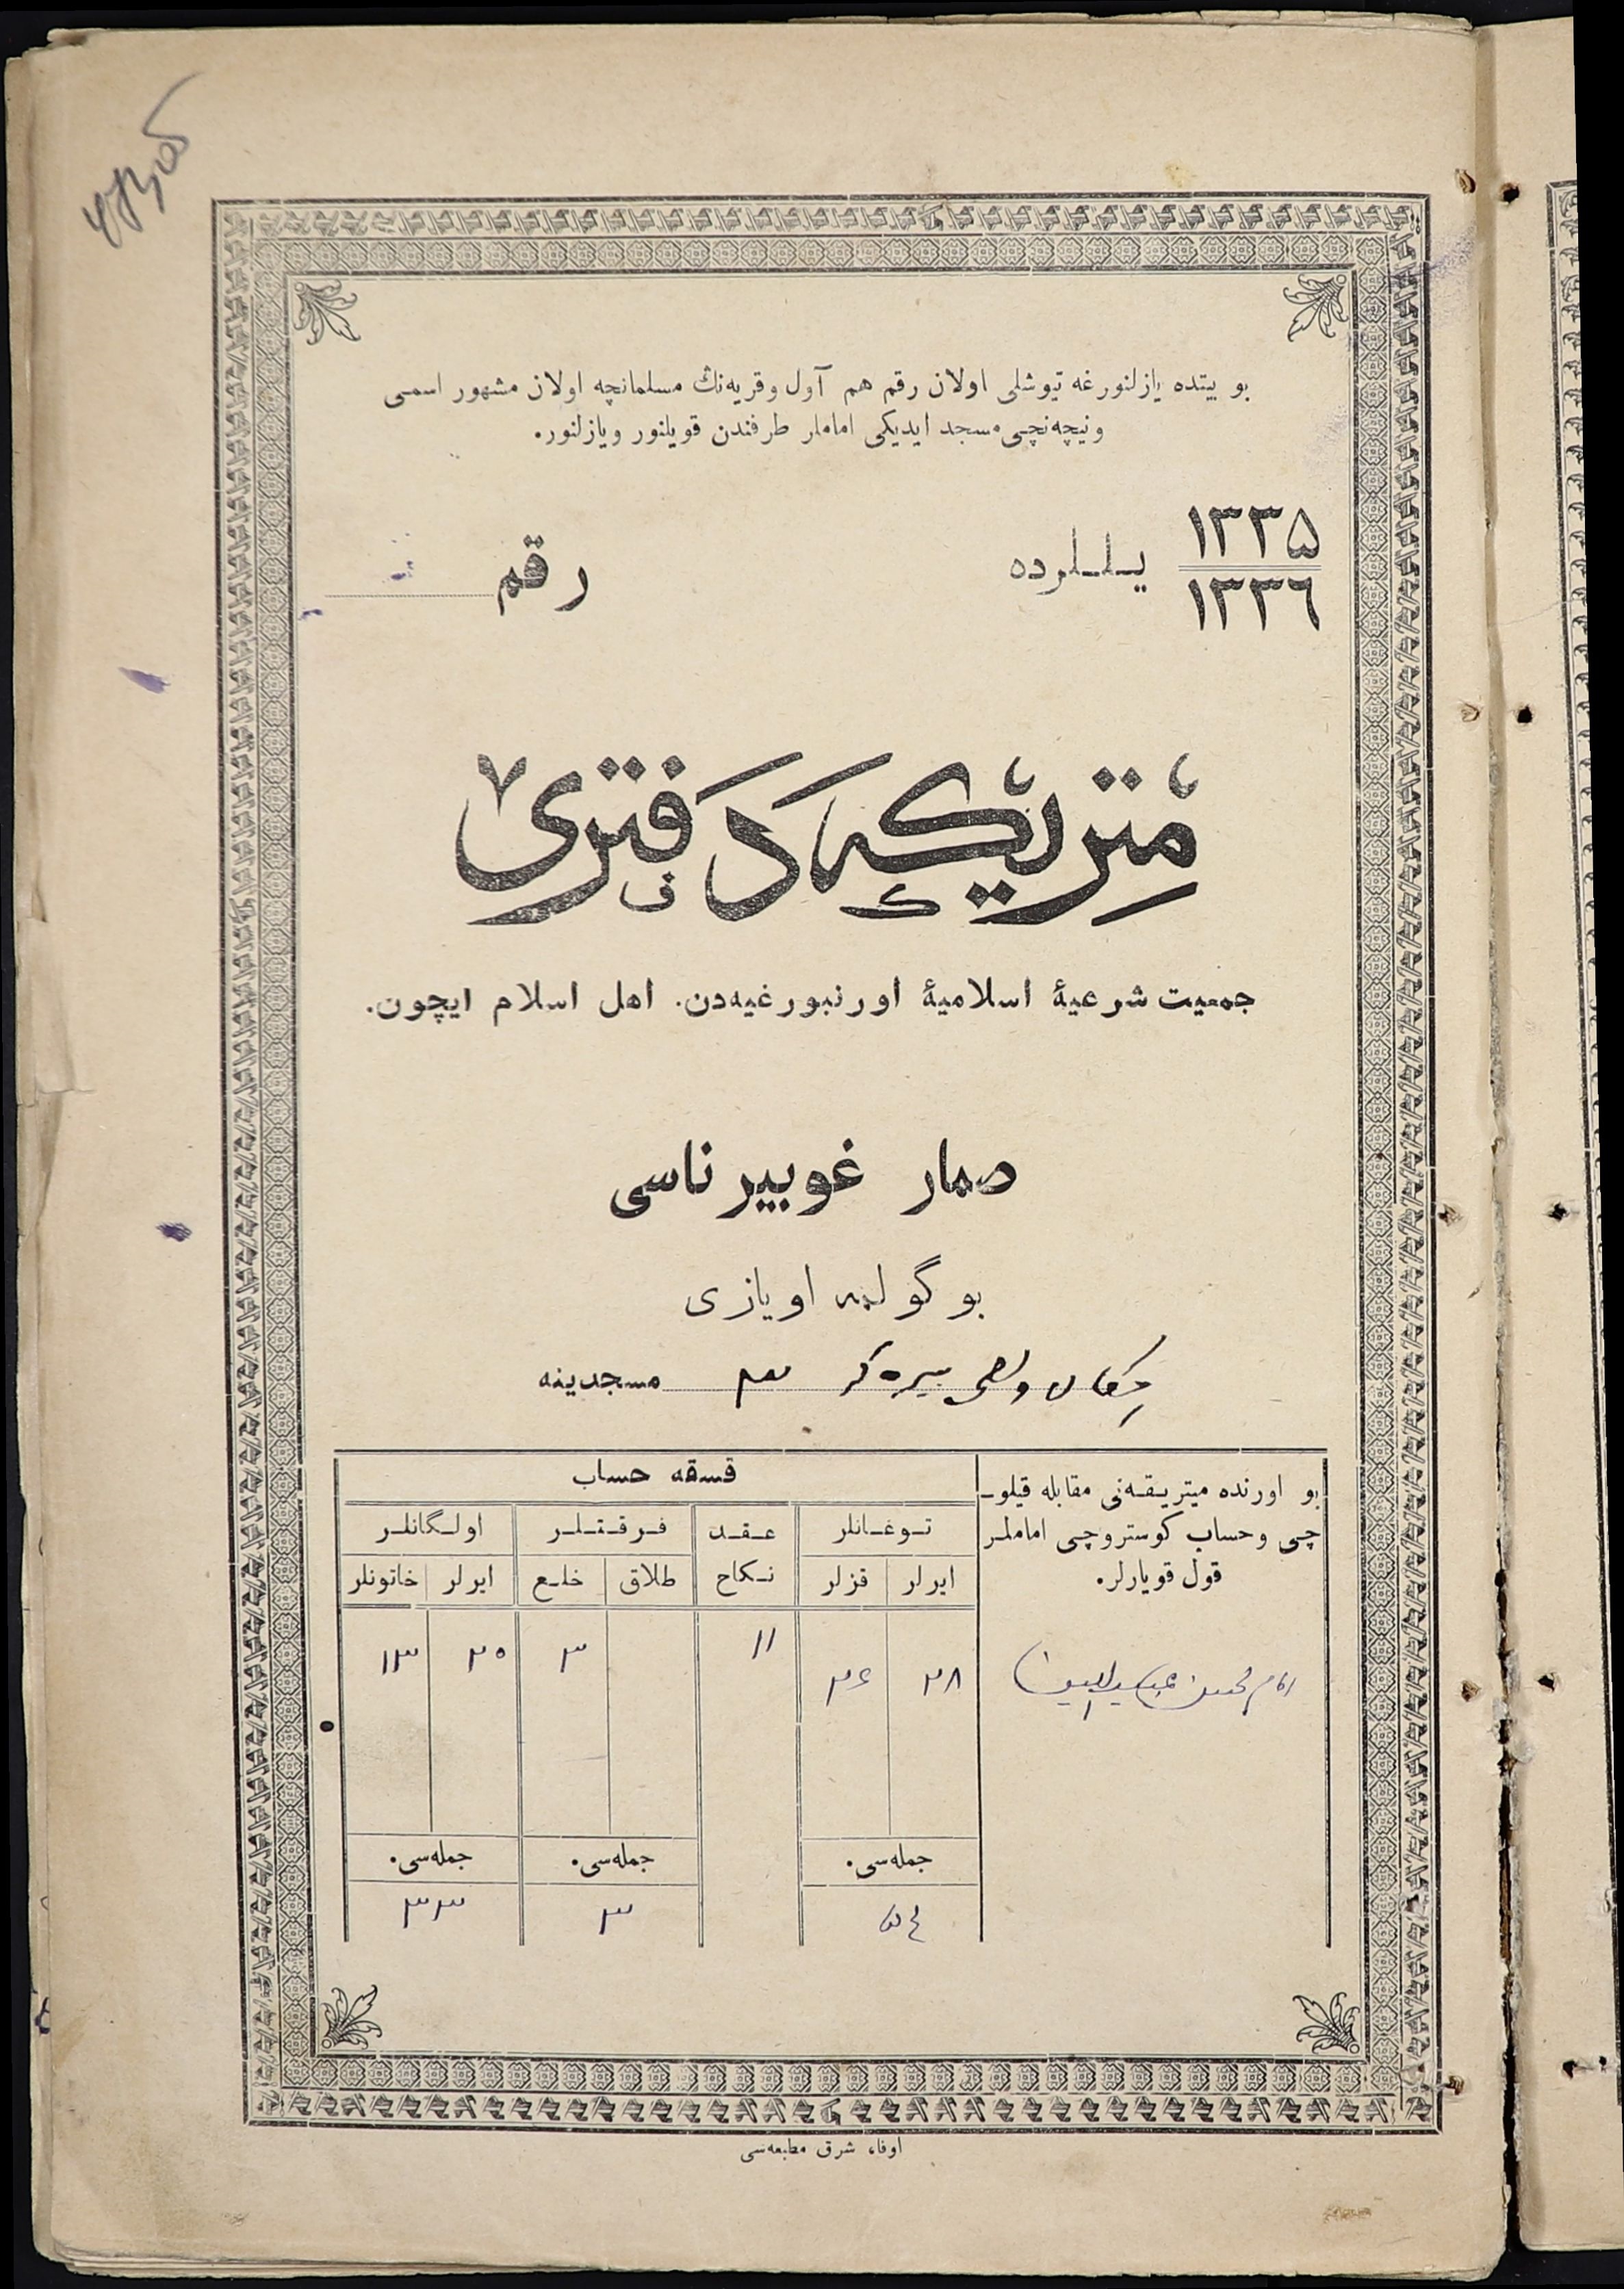 بو بیتده یازلنورغه تیوشلی اولان رقم هم آول وقریه‌نڭ مسلمانچه اولان مشهور اسمی
ونیچه‌نچی مسجد ایدیکی اماملر طرفندن قویلنور ویازلنور.
۱۳۳۵
۱۳۳٦
یـلـلـرده
رقم
مِتریكَه دَفتری
جمعیت شرعیهٔ اسلامیهٔ اورنبورغیه‌دن. اهل اسلام ایچون.
صمار غوبیرناسی
بوگولمه اویازی
مسجدینه
بو اورنده میتریـقـه‌نی مقابله قیلو-
چی وحساب کوستروچی اماملر
قول قویارلر.
قسقه حساب
تـوغـانلر
عـقـد
فـرقـتـلـر
اولـگانلـر
ایرلر
قزلر
نـکاح
طلاق
خلـع
ایرلر
خاتونلر
۲۸
۲۶
۱۱
۳
۲۰
۱۳
جمله‌سی.
جمله‌سی.
جمله‌سی.
۵٤
۳
۳۳
اوفا، شرق مطبعه‌سی